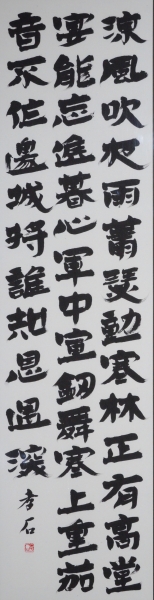 涼風吹夜雨蕭瑟動寒林正有高堂
宴能忘遲暮心軍中宜劍舞塞上重笳
音不作邊城將誰知恩遇深
孝石